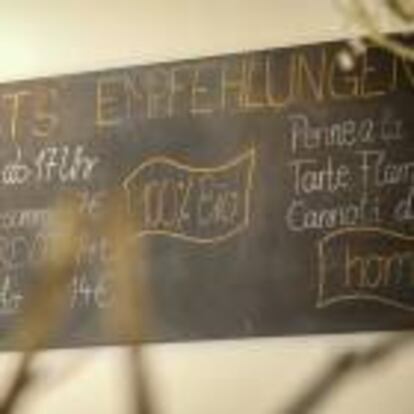 TS EMPFEHLUNGEN
ab 17 Uhr
7€
14€
14€
100% Bio!
Penne a la
Tarte Flam
Cannoli d
hom